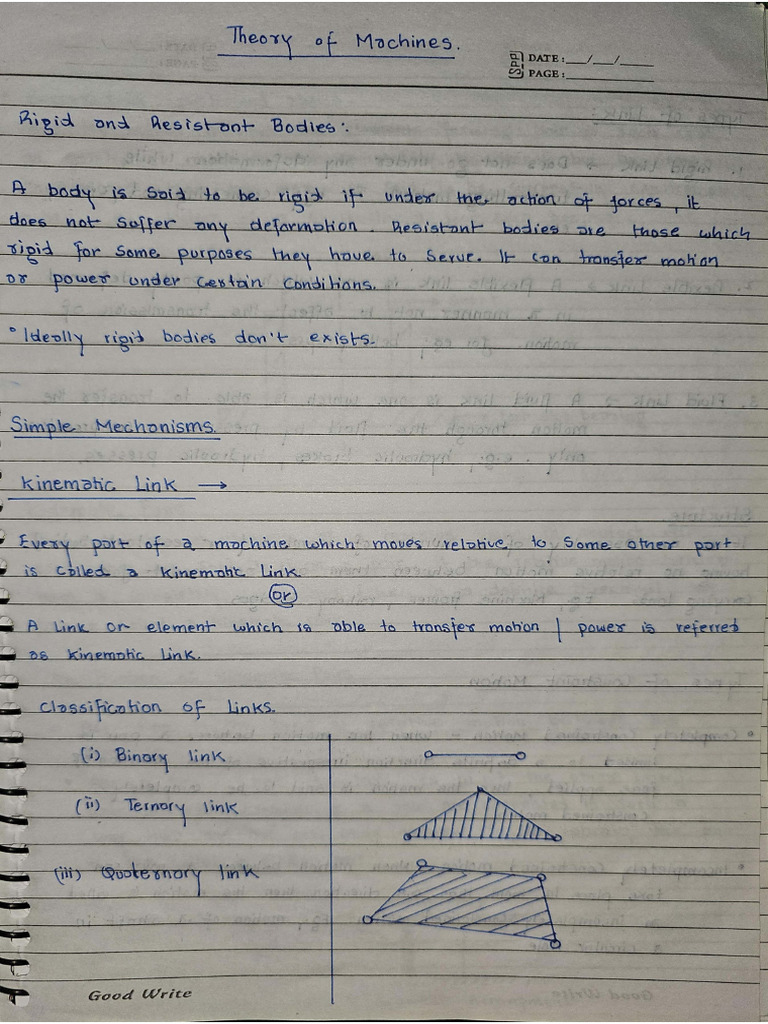 Theory of Machines.
SPP
DATE: __/__/____
PAGE: ________
Rigid and Resistant Bodies:
A body is said to be rigid if under the action of forces, it
does not suffer any deformation. Resistant bodies are those which
rigid for some purposes they have to serve. It can transfer motion
or power under certain conditions.
• Ideally rigid bodies don't exists.
Simple Mechanisms.
Kinematic Link →
Every part of a machine which moves relative to some other part
is called a kinematic link.
or
A link or element which is able to transfer motion / power is referred
as kinematic link.
Classification of Links.
(i) Binary link
(ii) Ternary link
(iii) Quaternary link
Good Write